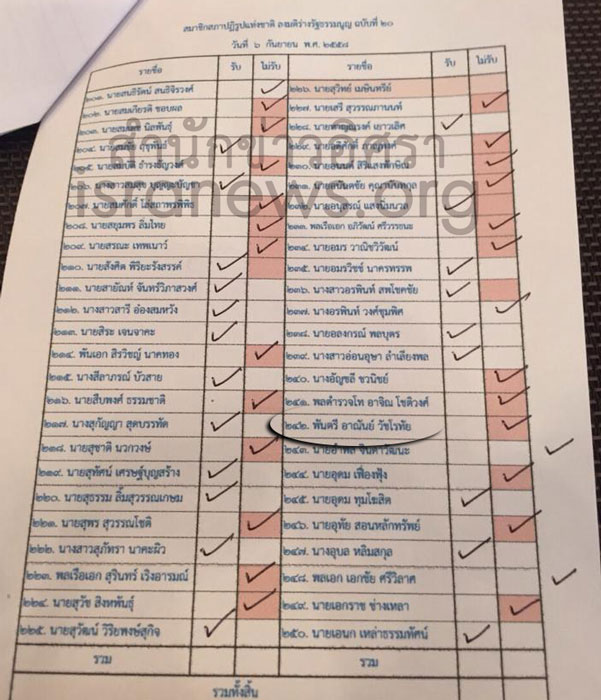 สมาชิกสภาปฏิรูปแห่งชาติ ลงมติร่างรัฐธรรมนูญ ฉบับที่ ๒๐
วันที่ ๖ กันยายน พ.ศ. ๒๕๕๘
รายชื่อ รับ ไม่รับ
๒๐๑. นายสนธิรัตน์ สนธิจิรวงศ์
๒๐๒. นายสมเกียรติ ชอบผล
๒๐๓. นายสมเดช นิลพันธุ์
๒๐๔. นายสมชัย ฤชุพันธุ์
๒๐๕. นายสมบัติ ธำรงธัญวงศ์
๒๐๖. นางสาวสมสุข บุญญะบัญชา
๒๐๗. นายสมศักดิ์ โล่สถาพรพิพิธ
๒๐๘. นายสยุมพร ลิ่มไทย
๒๐๙. นายสรณะ เทพเนาว์
๒๑๐. นายสังศิต พิริยะรังสรรค์
๒๑๑. นายสายัณห์ จันทร์วิภาสวงศ์
๒๑๒. นางสาวสารี อ๋องสมหวัง
๒๑๓. นายสิระ เจนจาคะ
๒๑๔. พันเอก สิรวิชญ์ นาคทอง
๒๑๕. นางสีลาภรณ์ บัวสาย
๒๑๖. นายสืบพงศ์ ธรรมชาติ
๒๑๗. นางสุกัญญา สุดบรรทัด
๒๑๘. นายสุชาติ นวกวงษ์
๒๑๙. นายสุทัศน์ เศรษฐ์บุญสร้าง
๒๒๐. นายสุธรรม ลิ้มสุวรรณเกษม
๒๒๑. นายสุพร สุวรรณโชติ
๒๒๒. นางสาวสุภัทรา นาคะผิว
๒๒๓. พลเรือเอก สุรินทร์ เริงอารมณ์
๒๒๔. นายสุวัช สิงหพันธุ์
๒๒๕. นายสุวัฒน์ วิริยพงษ์สุกิจ
รวม
รายชื่อ รับ ไม่รับ
๒๒๖. นายสุวิทย์ เมษินทรีย์
๒๒๗. นายเสรี สุวรรณภานนท์
๒๒๘. นายหาญณรงค์ เยาวเลิศ
๒๒๙. นายอดิศักดิ์ ภาณุพงศ์
๒๓๐. นายอนนต์ สิริแสงทักษิณ
๒๓๑. นายอนันตชัย คุณานันทกุล
๒๓๒. นายอนุสรณ์ แสงนิ่มนวล
๒๓๓. พลเรือเอก อภิวัฒน์ ศรีวรรธนะ
๒๓๔. นายอมร วาณิชวิวัฒน์
๒๓๕. นายอมรวิชช์ นาครทรรพ
๒๓๖. นางสาวอรพินท์ สพโชคชัย
๒๓๗. นางอรพินท์ วงศ์ชุมพิศ
๒๓๘. นายอลงกรณ์ พลบุตร
๒๓๙. นางสาวอ่อนอุษา ลำเลียงพล
๒๔๐. นางอัญชลี ชวนิชย์
๒๔๑. พลตำรวจโท อาจิณ โชติวงศ์
๒๔๒. พันตรี อาณันย์ วัชโรทัย
๒๔๓. นายอำพล จินดาวัฒนะ
๒๔๔. นายอุดม เฟื่องฟุ้ง
๒๔๕. นายอุดม ทุมโฆสิต
๒๔๖. นายอุทัย สอนหลักทรัพย์
๒๔๗. นางอุบล หลิมสกุล
๒๔๘. พลเอก เอกชัย ศรีวิลาศ
๒๔๙. นายเอกราช ช่างเหลา
๒๕๐. นายเอนก เหล่าธรรมทัศน์
รวม
รวมทั้งสิ้น
สำนักข่าวอิศรา
isranews.org